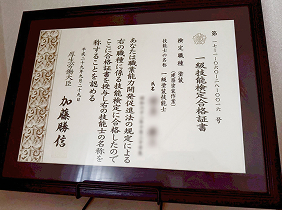 一級技能検定合格証書
検定職種 塗装
(建築塗装作業)
技能士の名称 一級塗装技能士
氏名
あなたは職業能力開発促進法の規定により
右の職種に係る技能検定に合格したので
ここに合格証書を授与し右の技能士の名称を
称することを認める
厚生労働大臣 加藤勝信